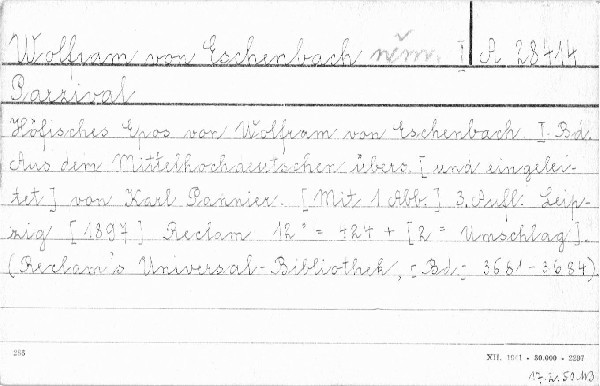 Wolfram von Eschenbach něm. I R 28414
Parzival
Höfisches Epos von Wolfram von Eschenbach. I. Bd.
Aus dem Mittelhochdeutschen übers. [ und eingelei-
tet ] von Karl Pannier. [ Mit 1 Abb. ] 3. Aufl. Leip-
zig [ 1897 ] Reclam 12° = 424 + [ 2 = Umschlag ].
(Reclam's Universal-Bibliothek, = Bd. = 3681 - 3684).
285
XII. 1941 - 30.000 - 2297